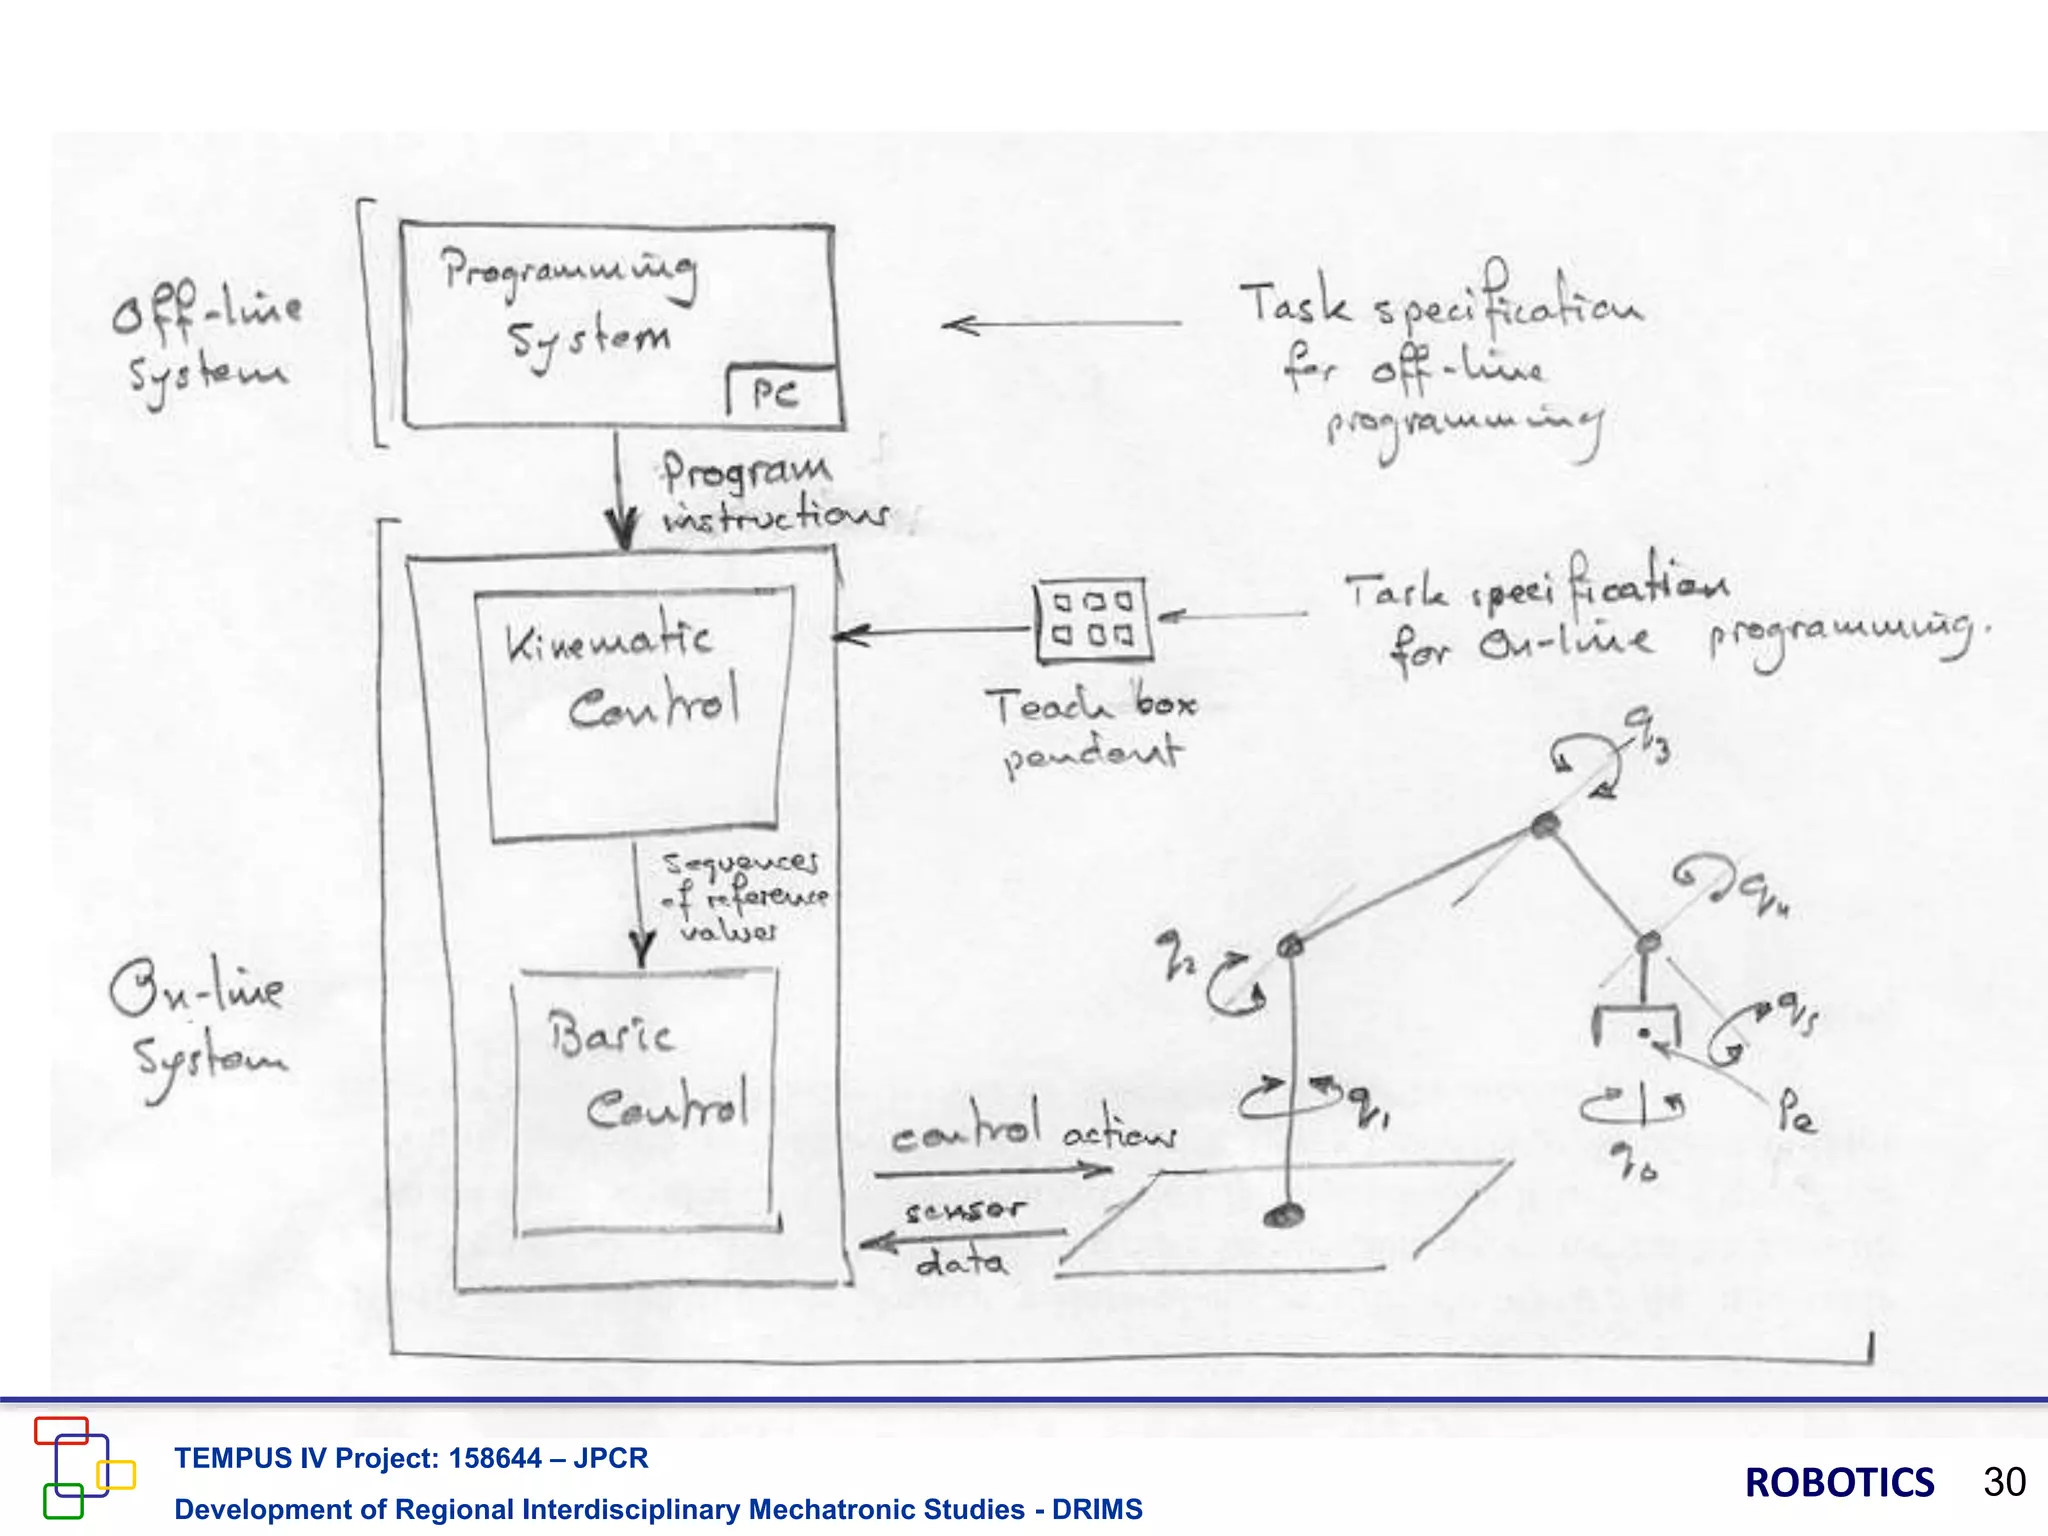 Off-line
System
Programming
System
PC
Task specification
for off-line
programming
Program
instructions
Kinematic
Control
Teach box
pendent
Task specification
for On-line programming.
Sequences
of reference
values
On-line
System
Basic
Control
control actions
sensor
data
q3
q2
q4
q5
q1
Pe
q6
TEMPUS IV Project: 158644 – JPCR
Development of Regional Interdisciplinary Mechatronic Studies - DRIMS
ROBOTICS 30